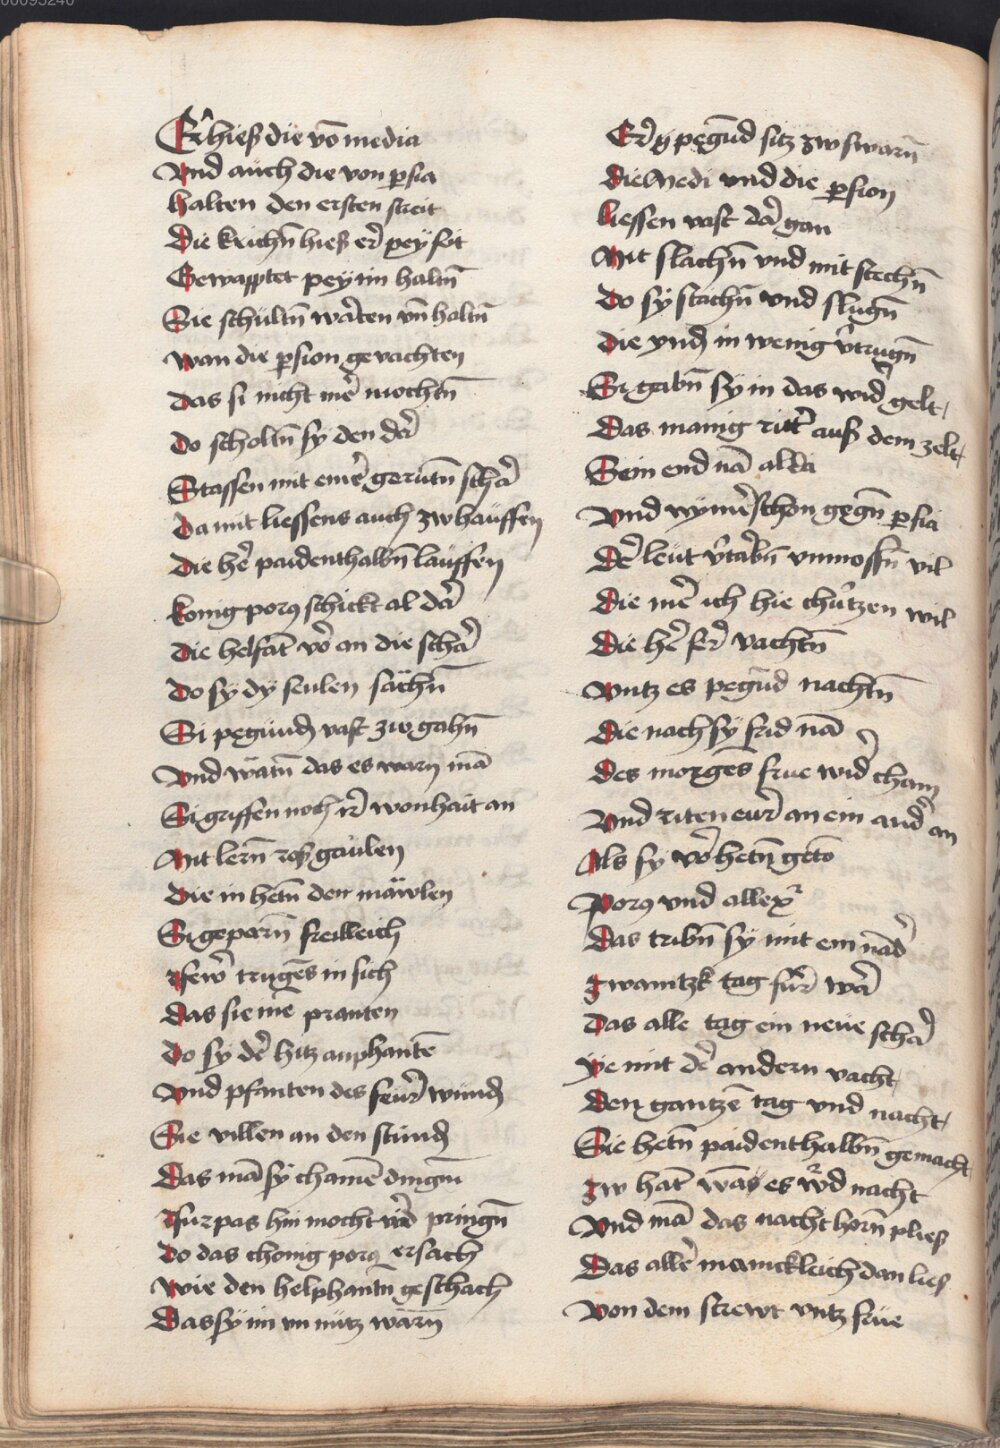 00095240
Er hieß die vō media
Vnd auch die von ꝑsia
halten den ersten streit
Die krichn̄ hieß er pey sot
Gewapptet pey im haltn̄
Sie schultn̄ warten vn̄ haltn̄
Wan die ꝑsion gevachten
Das si nicht me᷑ mochtn̄
Do scholtn̄ sy den da᷑
Staffen mit eine᷑ gerutn̄ scha᷑
Da mit liessens auch zw hauffen
Die he᷑ paidenthalbn̄ lauffen
konig porꝯ schickt al da᷑
Die helfāt vo᷑ an die scha᷑
Do sy dy seulen sachn̄
Si pegundn̄ vast zw gahn̄
Vnd watn̄ das es warn mā
Si griffen noch ir᷑ wonhait an
Mit lern̄ roß gaulen
Die in hetn̄ den mäwlen
Si geparn̄ freilleich
Few᷑ trugēs in sich
Das sie mē pranten
Do sy de᷑ hitz anphantē
Vnd pfanten des feur᷑ wundn̄
Sie villen an den stundn̄
Das mā sy chamē dingn̄
Furpas hin mocht pringn̄
Do das chonig porꝯ ersach
Wie den helphantn̄ geschach
Das sy im vn nutz warn̄
Er pegūd sitz zw swarn̄
Die Medi vnd die ꝑsion
liessen vast da᷑ gan
Mit slachn̄ vnd mit stechn̄
Do sy stachn̄ vnd slugn̄
Die yndn̄ in wenig v᷑trugn̄
Si gabn̄ sy in das wid᷑ gelt
Das manig ritt᷑ auß dem zelt
Sein end nā alda
Vnd nyme᷑ schon gegn̄ ꝑsia
De᷑ leut v᷑tarbn̄ vnmossn̄ vil
Die me᷑ ich hie chu᷑tzen wil
Die he᷑ ser᷑ vachtn̄
Vntz es pegūd nachtn̄
Die nach sy frid nā
Des morgēs frue wid᷑ cham
Vnd riten eur᷑ an ein and᷑ an
Als sy vo᷑ hetn̄ getō
Porꝯ vnd allex᷑
Das tribn̄ sy mit ein nād᷑
Zwaintzk tag fur᷑ wa᷑
Das alle tag ein neue scha᷑
ye mit de᷑ andern vacht
Den gantzē tag vnd nacht
Sie hetn̄ paidenthalbn̄ gemacht
Zw hāt wān es w᷑d nacht
Vnd mā das nacht horn̄ plies
Das alle᷑ manickleich dan lies
Von dem strewt vntz frue